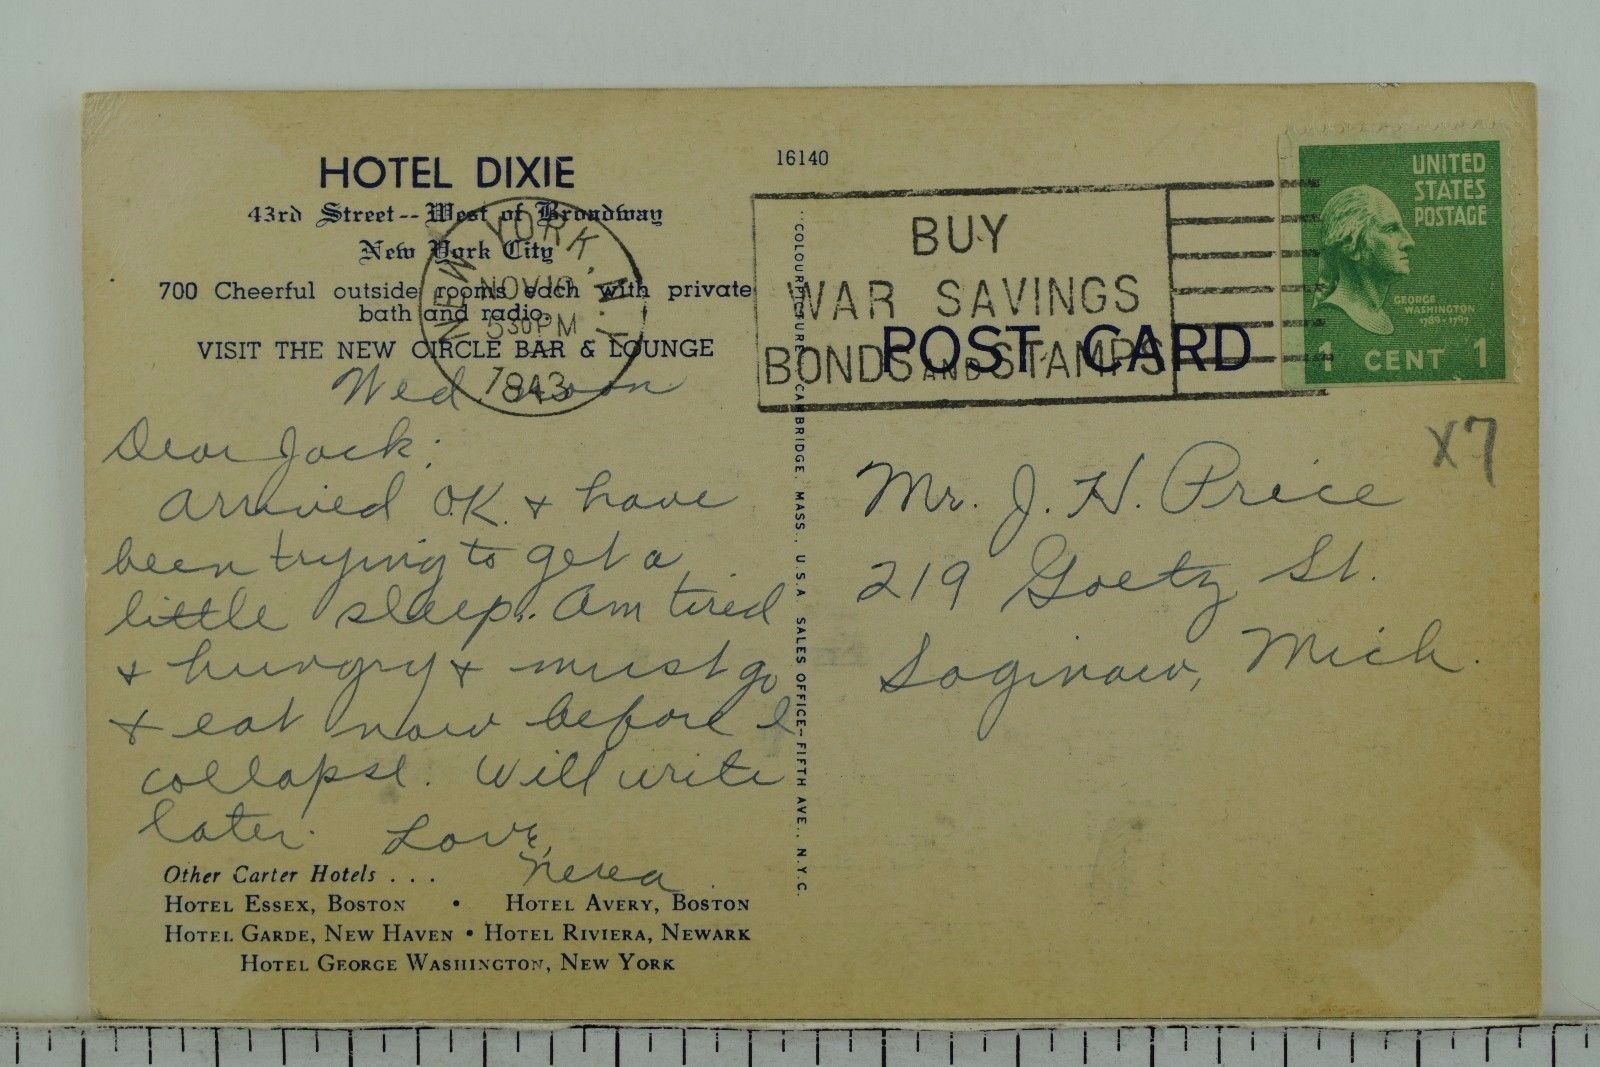 HOTEL DIXIE
43rd Street -- West of Broadway
New York City
700 Cheerful outside rooms each with private
bath and radio.
VISIT THE NEW CIRCLE BAR & LOUNGE
NEW YORK, N.Y.
NOV
5 30 PM
1943
Wed. noon
Dear Jack:
Arrived O.K. & have
been trying to get a
little sleep. Am tired
& hungry & must go
& eat now before I
collapse. Will write
later. Love,
Other Carter Hotels . . .
HOTEL ESSEX, BOSTON • HOTEL AVERY, BOSTON
HOTEL GARDE, NEW HAVEN • HOTEL RIVIERA, NEWARK
HOTEL GEORGE WASHINGTON, NEW YORK
16140
"COLOURPICTURE" CAMBRIDGE, MASS., U.S.A. SALES OFFICE—FIFTH AVE., N.Y.C.
BUY
WAR SAVINGS
BONDS AND STAMPS
POST CARD
UNITED
STATES
POSTAGE
GEORGE
WASHINGTON
1789-1797
1 CENT 1
X7
Mr. J. H. Price
219 Goetz St.
Saginaw, Mich.